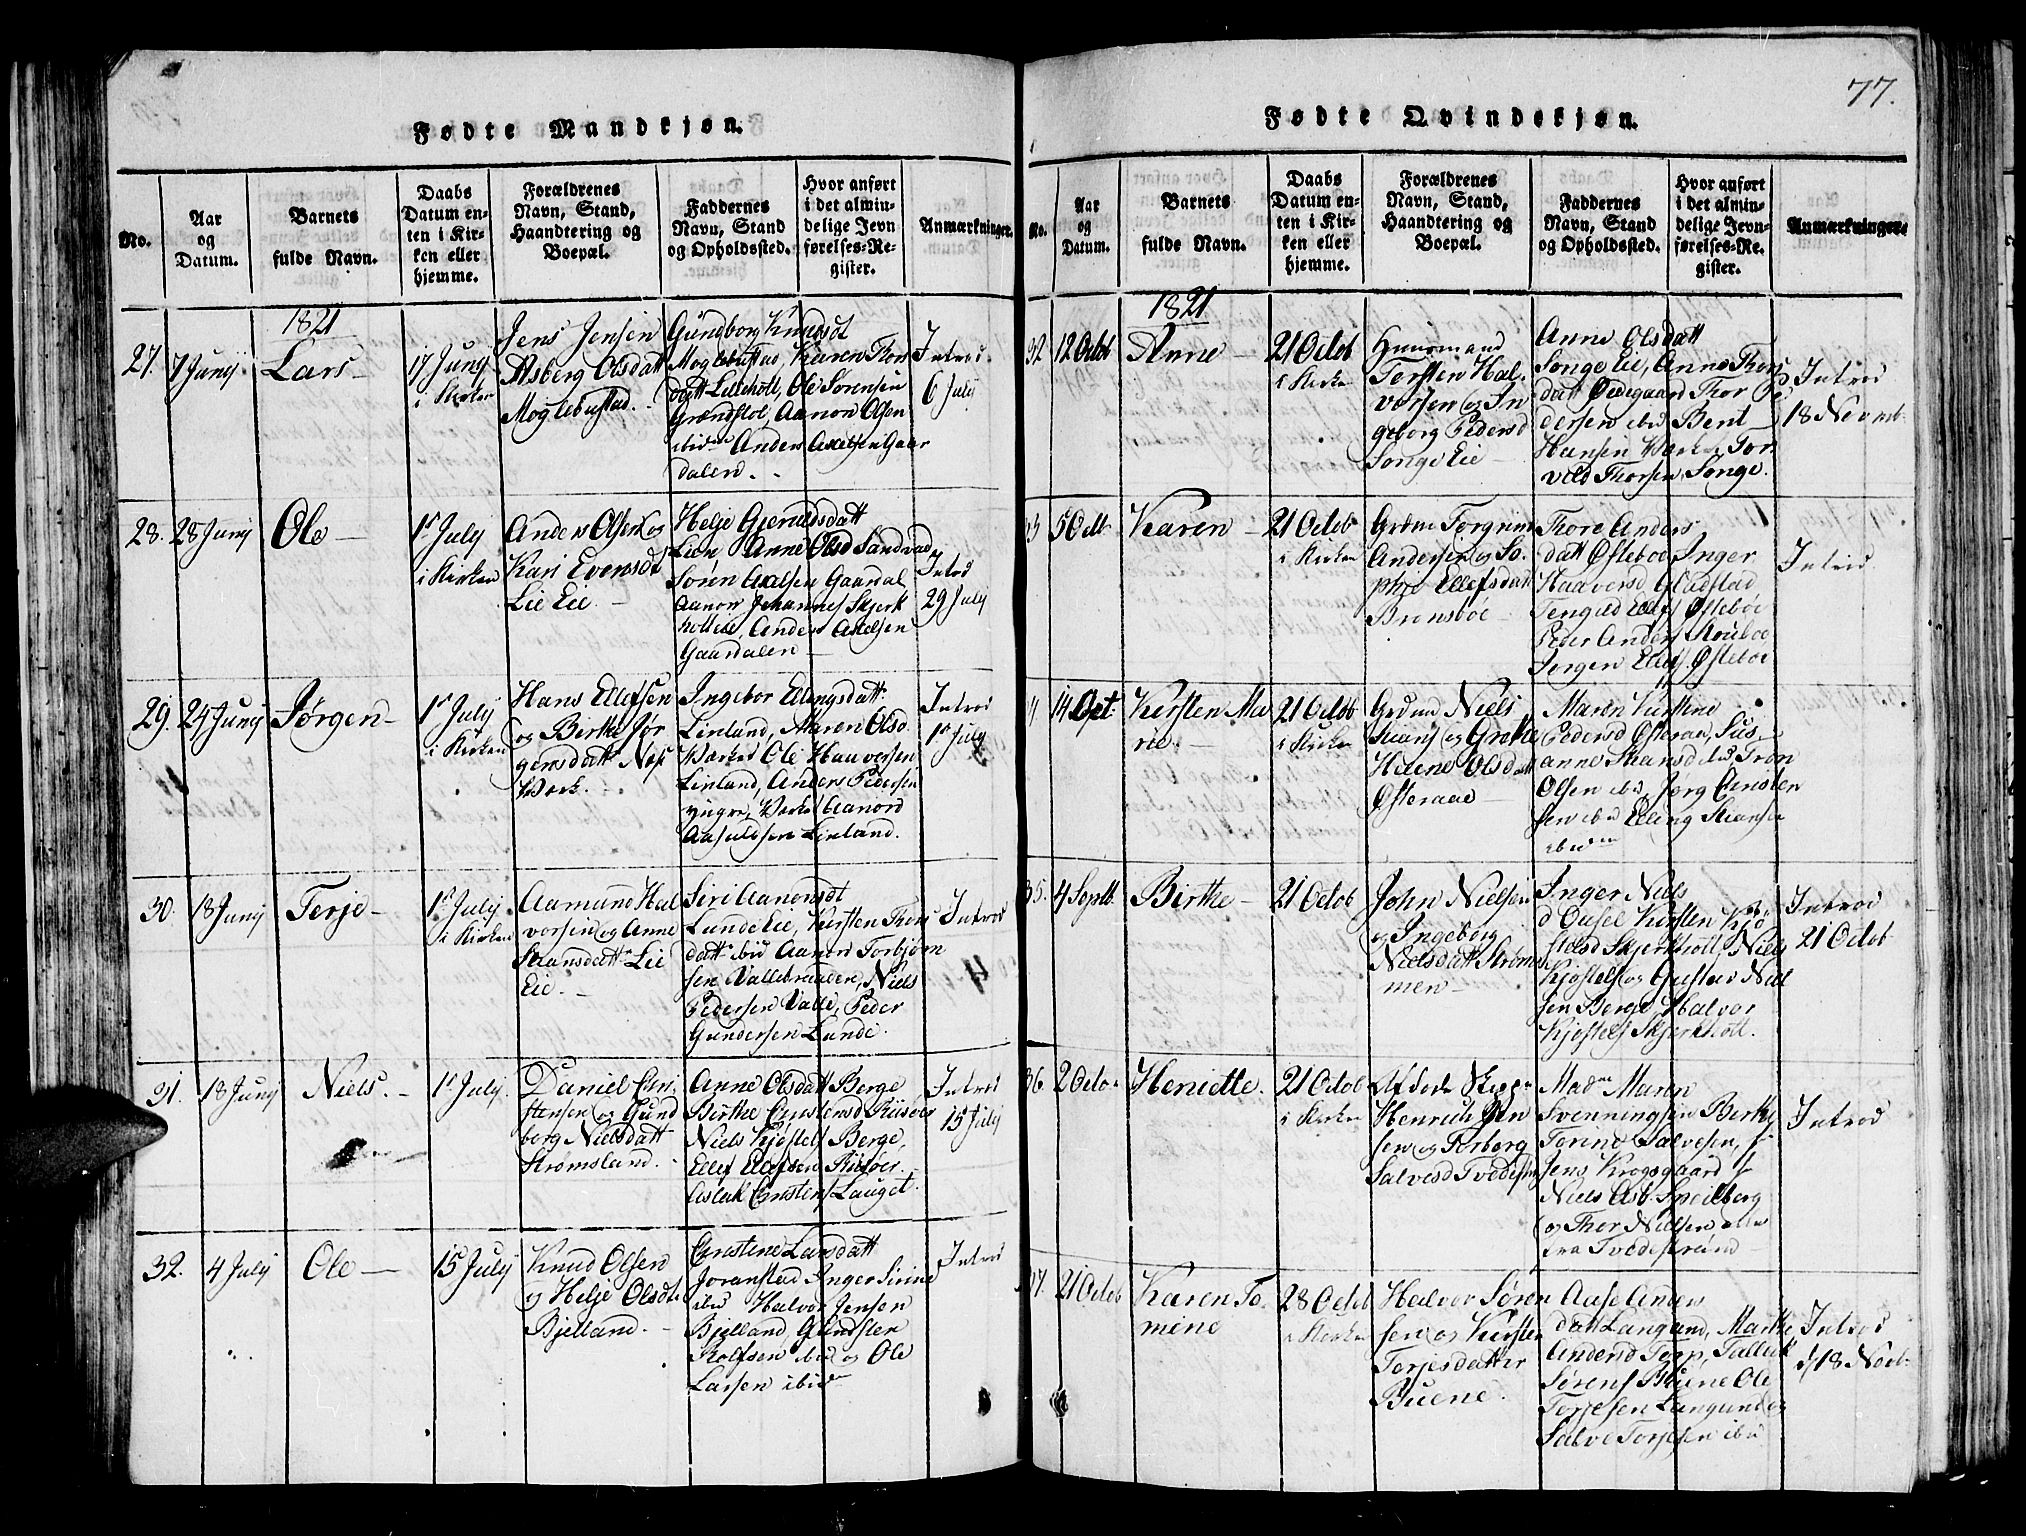 77.
Fødte Mandkjøn.
No.
Aar
og
Datum.
Barnets
fulde Navn.
Daabs
Datum en-
ten i Kir-
ken eller
hjemme.
Forældrenes
Navn, Stand,
Haandtering og
Boepæl.
Faddernes
Navn, Stand
og Opholdssted.
Hvor anført
i det almin-
delige Jevn
førelses-Re-
gister.
Anmærkninger.
1821
27.
7 Junij
Lars
17 Junij
i Kirken
Jens Jensen
Asberg Olsdatt
Moglebustad.
Gundborg Knudsdt
Moglebustad, Karen Thors
datt Lilleholt, Ole Sørensen
Grændstøl, Aanon Olsen
ibid Anders Axelsen Gaar
dalen.
Introd.
6 July
28.
28 Junij
Ole
1st July
i Kirken
Anders Olsen og
Kari Evensdt
Lie Eie.
Helje Gjeruldsdatt
Lien Anne Olsd Sandvad
Søren Axelsen Gaardal
Aanon Johannes Skjerk
holteie, Anders Axelsen
Gaardalen
Introd
29 July
29.
24 Junij
Jørgen
1st July
i Kirken
Hans Ellefsen
og Birthe Jør
gensdatt Næs
Værk.
Ingebor Ellingsdatt
Linland, Maren Olsd.
Værket Ole Haavorsen
Linland, Anders Pedersen
yngre, Værket Aanord
Aasuldsen Linland.
Introd
1st July
30.
18 Junij
Terje
1st July
i Kirken
Aamund Hal
vorsen og Anne
Stiansdatt Lie
Eie.
Siri Aanonsdt
Lunde Eie, Kirsten Thors
datt ibid Aanon Torbjørn
sen Vallebraaden, Niels
Pedersen Valle, Peder
Gundersen Lunde.
Introd
31.
18 Junij
Niels.
1st July.
Daniel Chri
stensen og Gund
borg Nielsdatt
Strømsland.
Anne Olsdatt Berge
Birthe Christensd Riisøer
Niels Kjøstels Berge,
Ellef Ellefsen Riisøer
Aslak Christens Lauget.
Introd
15 July
32.
4 July
Ole
15 July
Knud Olsen
og Helje Olsdt
Bjelland.
Christene Larsdatt
Joranstad Inger Sirine
ibid Halvor Jensen
Bjelland, Gundsten
Rolfsen ibid og Ole
Larsen ibid
Introd
Fødte Qvindekjøn.
No.
Aar
og
Datum.
Barnets
fulde Navn.
Daabs
Datum en-
ten i Kir-
ken eller
hjemme.
Forældrenes
Navn, Stand,
Haandtering og
Boepæl.
Faddernes
Navn, Stand
og Opholdssted.
Hvor anført
i det almin-
delige Jevn-
førelses-Re-
gister.
Anmærkninger.
1821
32
12 Octob
Anne
21 Octob
i Kirken
Huusmand
Torsten Hal-
vorsen og In
geborg Pedersd
Songe Eie
Anne Olsdatt
Songe Eie, Anne Thors
datt Ødegaard Thor Pe
dersen ibid Bent
Hansen Værket Tor
vild Thorsen Songe.
Introd
18 Novmb.
33
5 Octb
Karen
21 Octob
i Kirken
Grdm Torgrim
Andersen og So
phie Ellefsdatt
Brønsboe
Thore Anders
datt Østeboe Inger
Haaversd Gladstad
Tengild Ellefs Østeboe
Peder Anders Stouboe
Jørgen Ellefs Østeboe
Introd
14 Oct.
Kirsten Ma
rie.
21 Octob
i Kirken
Grdmd Niels
Stians og Grethe
Helene Olsdatt
Østeraae
Maren Kirstine
Pedersd Østeraa, Sus-
anne Stiansd ibd Tron
Olsen ibd, Jørg Christen
sen ibd Elling Stiansen
ibidm
35.
4 Septb.
Birthe
21 Octob
John Nielsen
og Ingeborg
Nielsdatt Strøm
men
Inger Niels
d Ousel Kirsten Kjø
stelsd Skjerkholt, Niels
Kjøstels og Gustav Niel
sen Berge Halvor
Kjøstels Skjerkholt.
Introd
21 Octob
36.
2 Octo
Heniette.
21 Octob
i Kirken
Henrich
sen og Torborg
Salvesd Tvedestr
Madm Maren
Svenningsen Berthe
Torine Salvesen,
Jens Krogsgaard
Niels Asb. Speilberg
og Thor Nielsen alle
fra Tvedestrand
Introd
37.
21 Octob
Karen To-
mine
28 Octob
i Kirken
Halvor Søren
sen og Kirsten
Terjesdatter
Buene.
Aase Anders
datt Langund, Marthe
Andersd Torp, Tallak
Sørens Buene Ole
Torjesen Langund og
Salve Torjesen ibid
Introd
d 18 Novb.